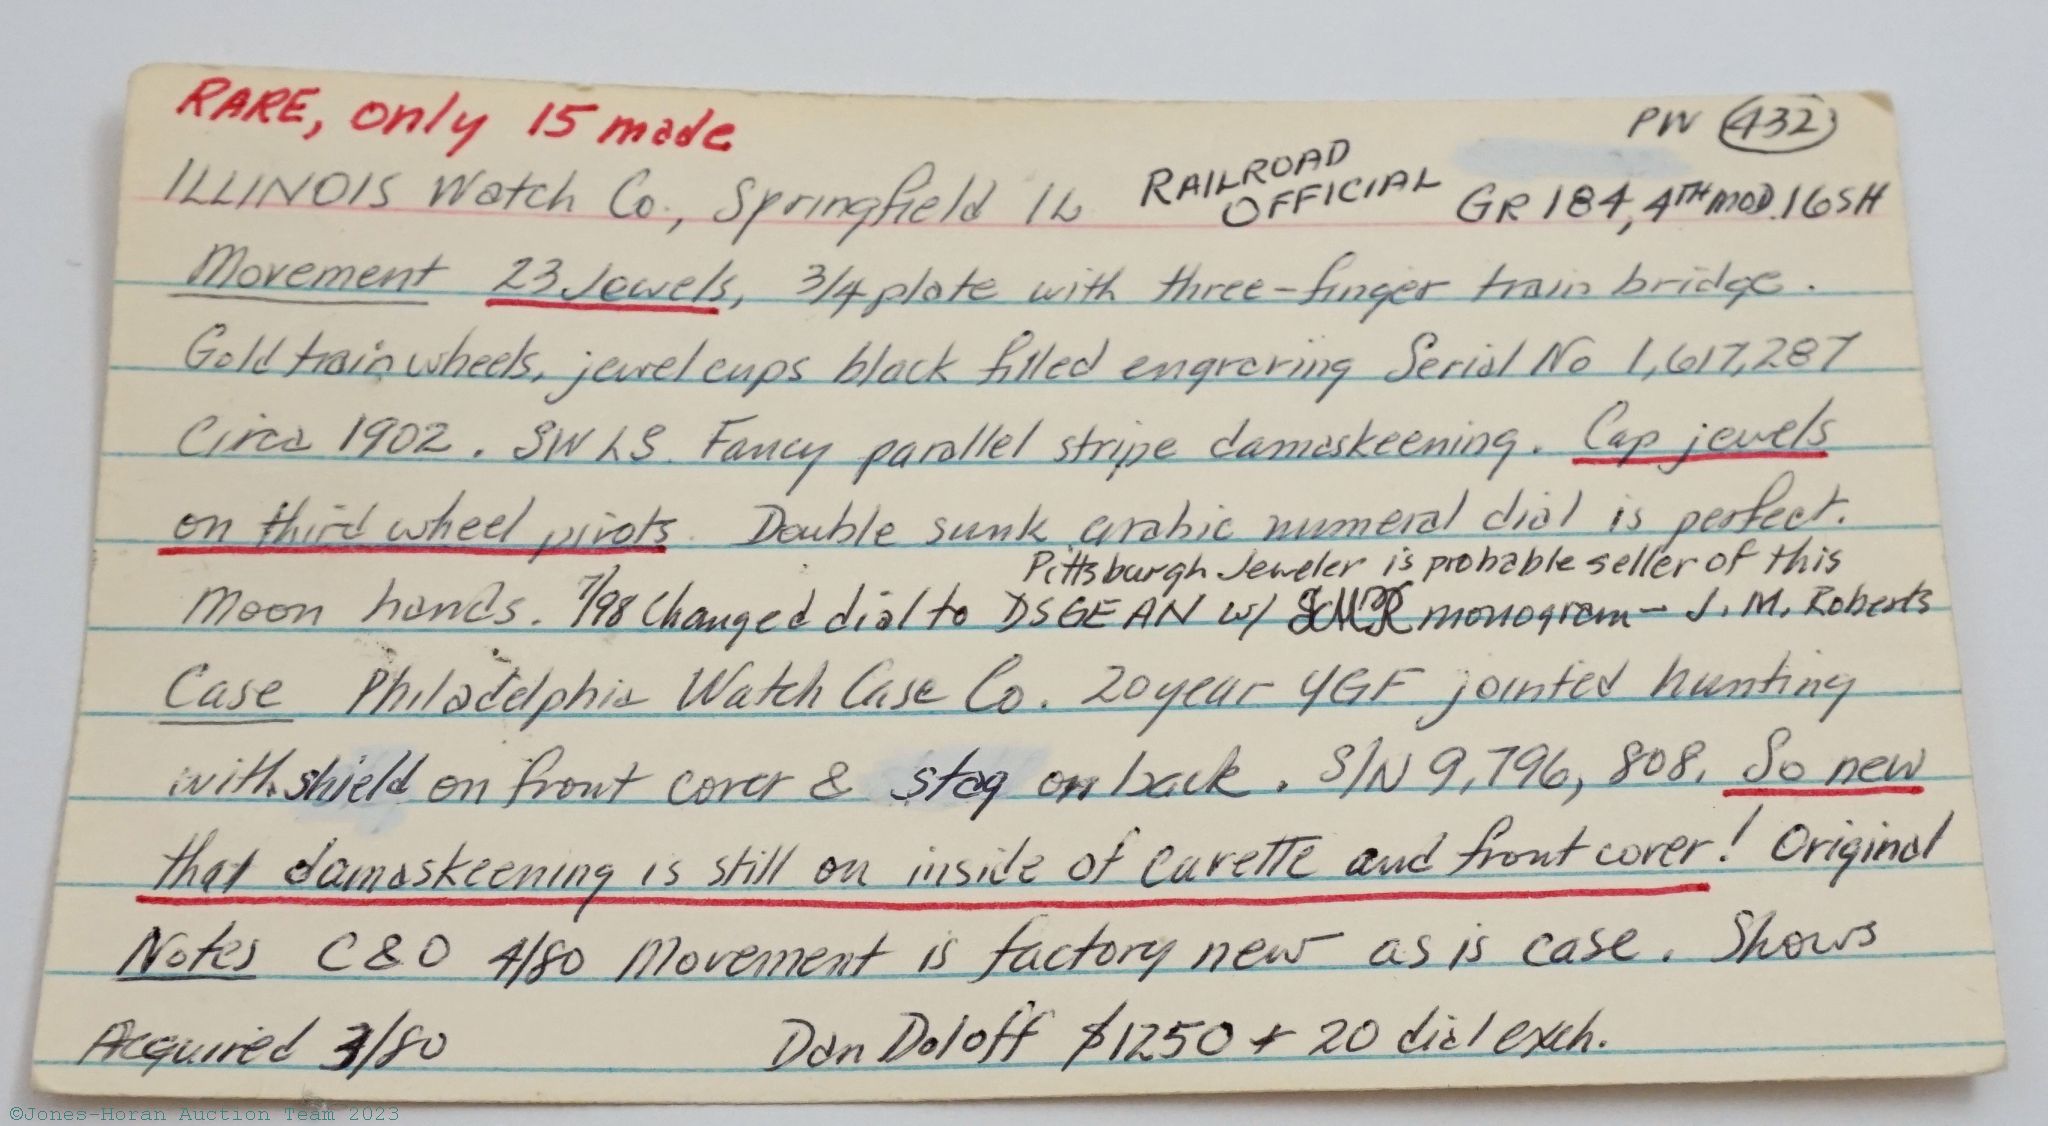 RARE, only 15 made
PW 432
ILLINOIS Watch Co., Springfield IL RAILROAD OFFICIAL GR 184, 4TH MOD. 16SH
Movement 23 Jewels, 3/4 plate with three-finger train bridge.
Gold train wheels, jewel cups black filled engraving Serial No 1,617,287
Circa 1902. SW LS. Fancy parallel stripe damaskeening. Cap jewels
on third wheel pivots. Double sunk arabic numeral dial is perfect.
Pittsburgh Jeweler is probable seller of this
Moon hands. 7/98 Changed dial to DSGEAN w/ JMR monogram - J. M. Roberts
Case Philadelphia Watch Case Co. 20 year YGF jointed hunting
with shield on front cover & stag on back. S/N 9,796,808. So new
that damaskeening is still on inside of cuvette and front cover! Original
Notes C&O 4/80 Movement is factory new as is case. Shows
Acquired 3/80 Dan Doloff $1250 + 20 dial exch.
©Jones-Horan Auction Team 2023